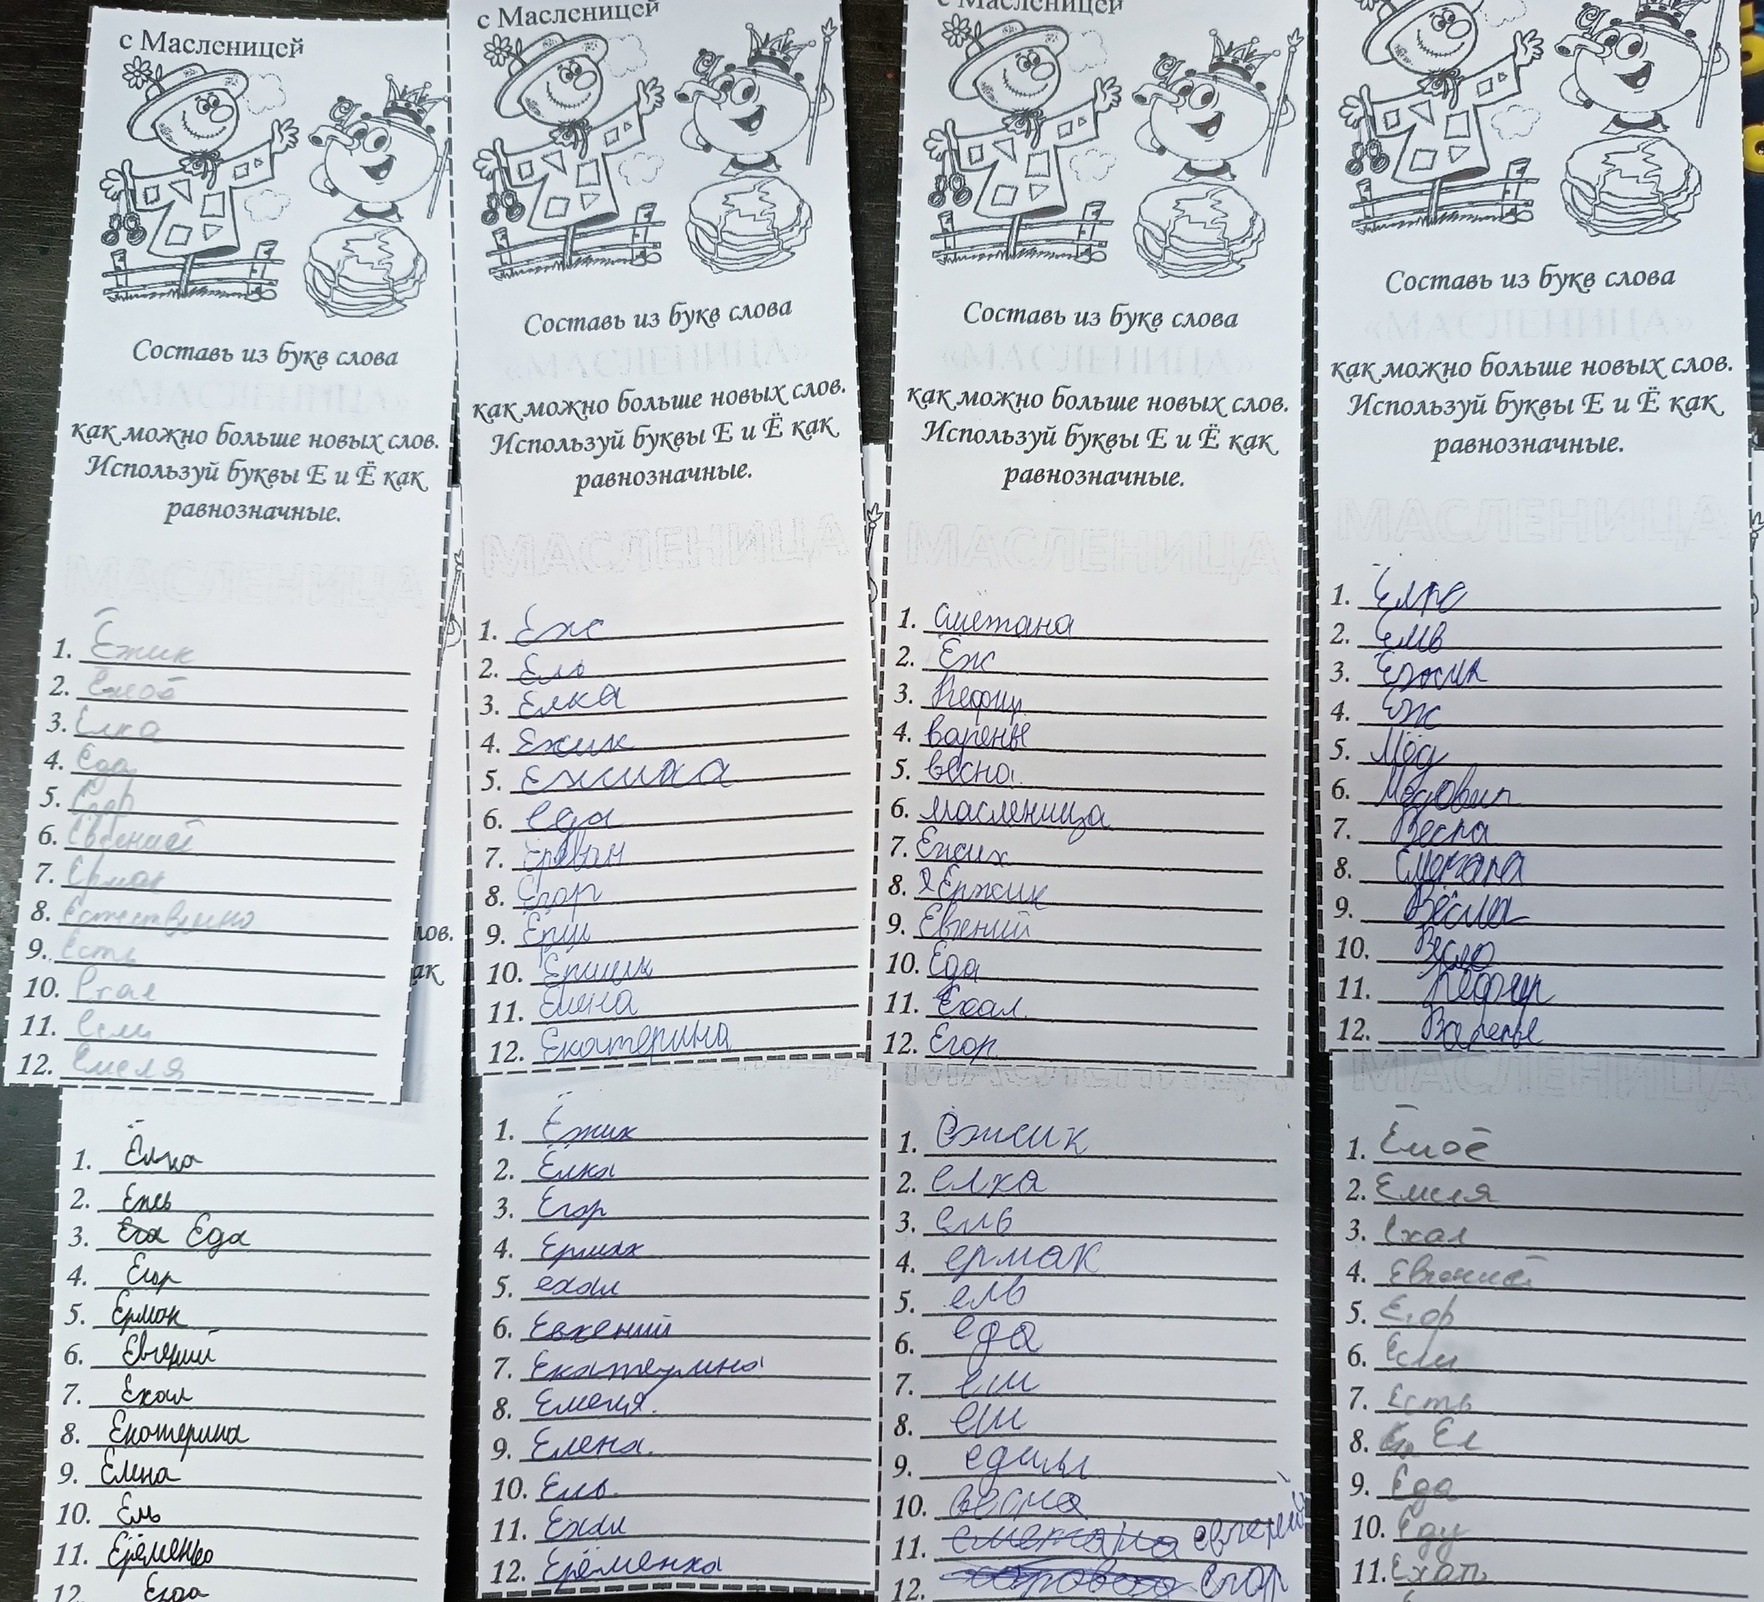 с Масленицей
Составь из букв слова
«МАСЛЕНИЦА»
как можно больше новых слов.
Используй буквы Е и Ё как
равнозначные.
МАСЛЕНИЦА
1. Ёжик
2.
3. Елка
4. Еда
5. Егор
6. Евгений
7. Ермак
8. Естественно
9. Есть
10.
11. Если
12. Емеля
с Масленицей
Составь из букв слова
«МАСЛЕНИЦА»
как можно больше новых слов.
Используй буквы Е и Ё как
равнозначные.
МАСЛЕНИЦА
1. Ёж
2. Ель
3. Елка
4. Ежик
5. Ежика
6. еда
7. Ереван
8. Егор
9.
10.
11. Елена
12. Екатерина
с Масленицей
Составь из букв слова
«МАСЛЕНИЦА»
как можно больше новых слов.
Используй буквы Е и Ё как
равнозначные.
МАСЛЕНИЦА
1. Сметана
2. Ёж
3. Кефир
4. варенье
5. весна
6. масленица
7. Ежик
8.
9. Евгений
10. Еда
11. Ехал
12. Егор
Составь из букв слова
«МАСЛЕНИЦА»
как можно больше новых слов.
Используй буквы Е и Ё как
равнозначные.
МАСЛЕНИЦА
1.
2.
3. Ёжик
4. Ёж
5. Мёд
6. Медовик
7. Весна
8. Сметана
9.
10. Весло
11. Кефир
12. Варенье
лов.
ак
1. Ёлка
2.
3. Еда
4. Егор
5. Ермак
6. Евгений
7. Ехал
8. Екатерина
9. Елена
10. Ель
11. Ерёменко
12. Езда
1. Ёжик
2. Ёлка
3. Егор
4. Ермак
5. ехал
6. Евгений
7. Екатерина
8. Емеля.
9. Елена.
10. Ель.
11. Ехали
12. Ерёменко
МАСЛЕНИЦА
1. Ежик
2. елка
3. ель
4. ермак
5. ель
6. еда
7. еш
8. еш
9.
10. весна
11. сметана евгений
12. Егор
МАСЛЕНИЦА
1.
2. Емеля
3. Ехал
4. Евгений
5. Егор
6. Если
7. Есть
8. Ел
9. Еда
10. Еду
11. Ехать